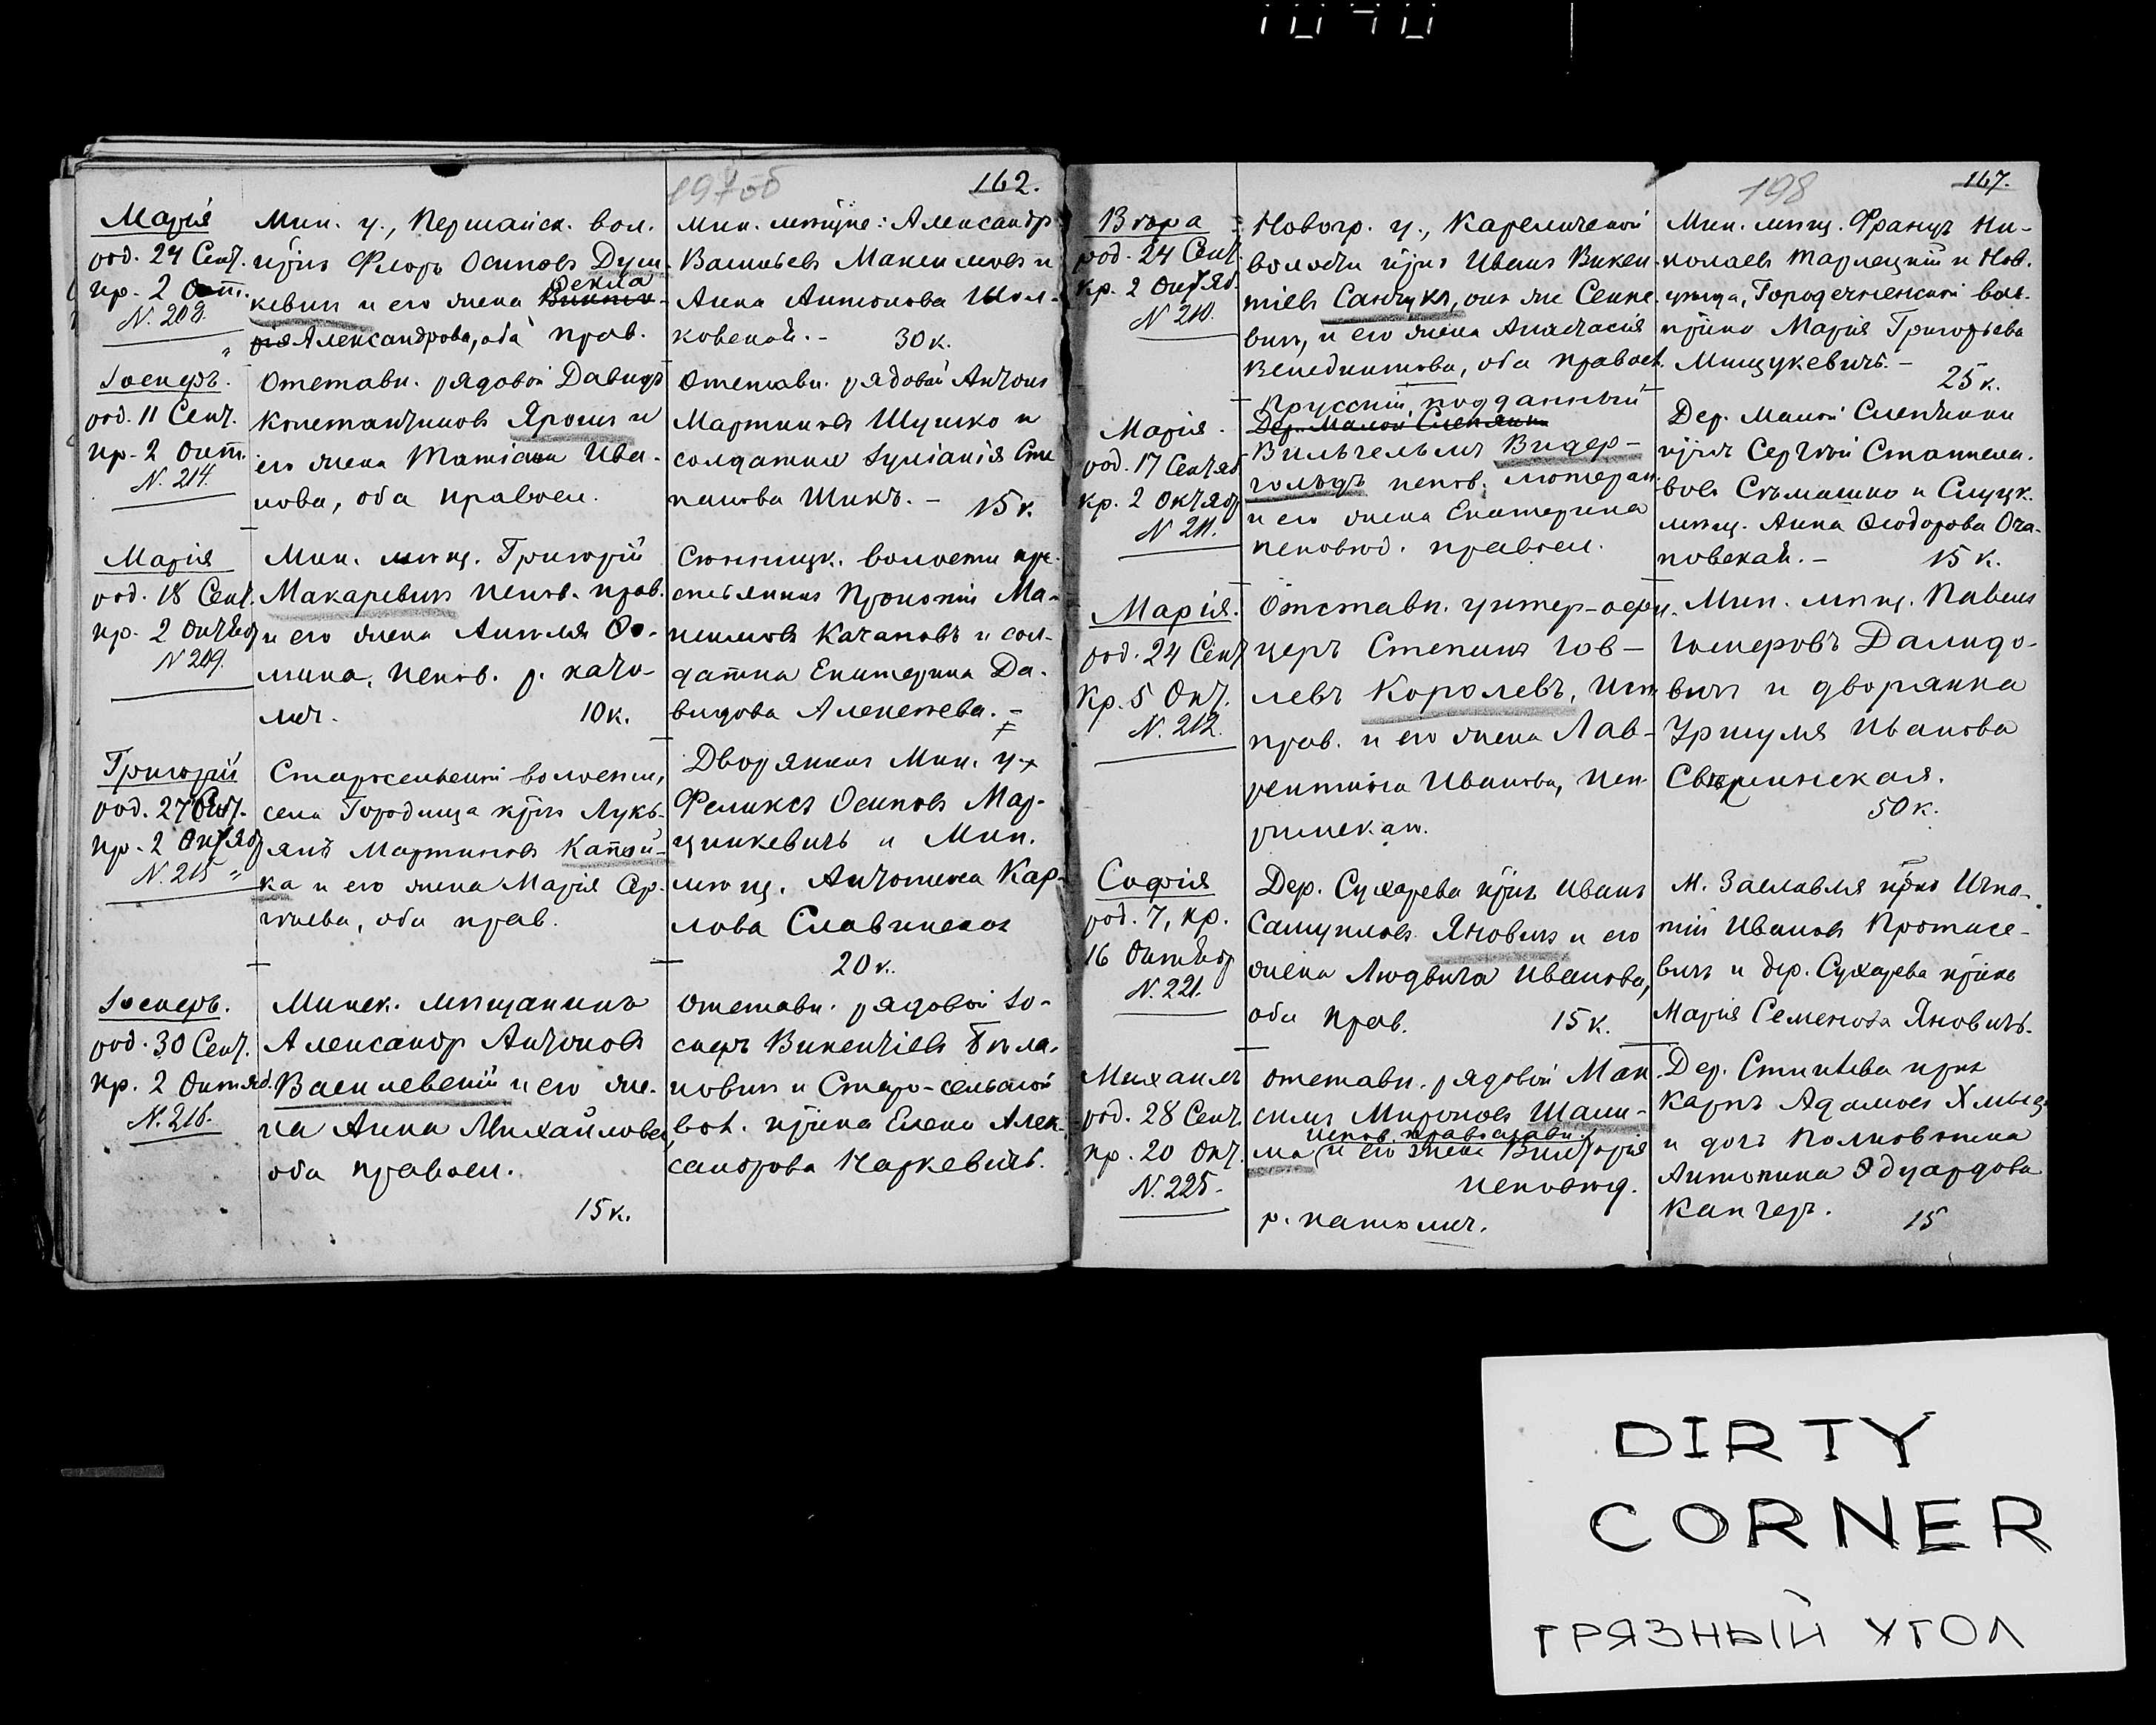 197об
162.
Марія
род. 24 Сент.
кр. 2 Окт.
N. 208.
Мин. у., Першайск. вол.
крнъ Флоръ Осиповъ Душ-
кевичъ и его жена Викто-
Ѳекла
рія Александрова, оба прав.
Мин. мѣщне: Александръ
Васильевъ Максимовъ и
Анна Антонова Шол-
ковская. - 30 к.
Іосифъ.
род. 11 Сент.
кр. 2 Окт.
N. 214.
Отставн. рядовой Давидъ
Константиновъ Ярошъ и
его жена Татіана Ива-
нова, оба православ.
Отставн. рядовой Антонъ
Мартиновъ Шушко и
солдатка Іуліанія Сте
панова Шикъ. - 15 к.
Марія
род. 18 Сент.
кр. 2 Октяб
N 209.
Мин. мѣщ. Григорій
Макаревичъ испов. прав.
и его жена Анеля Ѳо-
мина, испов. р. като-
лич. 10 к.
волости кре-
стьянинъ Прокопій Ма-
Качановъ и сол-
датка Екатерина Да-
видова Алексеева. -
Григорій
род. 27 Сент.
кр. 2 Октяб
N. 215 "
Старосельской волости,
села Городища крнъ Лукь-
янъ Мартиновъ Капай-
ка и его жена Марія Сер-
гѣева, оба прав.
Дворянинъ Мин. у.
Феликсъ Осиповъ Мар-
цинкевичъ и Мин.
мѣщ. Антонина Кар-
лова Славинская
20 к.
Іосифъ.
род. 30 Сент.
кр. 2 Октяб.
N. 216.
Минск. мѣщанинъ
Александръ Антоновъ
Василевскій и его же-
на Анна Михайлова,
оба православ.
15 к.
Отставн. рядовой Іо-
сифъ Викентіевъ Бѣла-
новичъ и Старо-сельской
вол. крнка Елена Алек-
сандрова Наркевичъ.
198
167.
Вѣра
род. 24 Сент.
кр. 2 Октяб.
N 210.
Новогр. у., Кареличской
волости крнъ Иванъ Викен-
тіевъ Санчукъ, онъ же Сенке-
вичъ, и его жена Анастасія
Венедиктова, оба правосл.
Мин. мѣщ. Францъ Ни-
колаевъ Тарлецкій и Нов.
уѣзда, Городечненской вол.
крнка Марія Григорьева
Мицукевичъ. -
25 к.
Марія.
род. 17 Сентяб
кр. 2 Октяб
N. 211.
Прусскій подданный
Дер. Малой Слепянки
Вильгельмъ Видер-
гольдъ испов. лютеран.
и его жена Екатерина
исповѣд. православ.
Дер. Малой Слепянки
крнъ Сергѣй Станисла-
вовъ Сѣмашко и Слуцк.
мѣщ. Анна Ѳеодорова Оча-
повская. - 15 к.
Марія.
род. 24 Сент
Кр. 5 Окт.
N. 212.
Отставн. унтер-офи-
церъ Степанъ Іов-
левъ Королевъ, исп
прав. и его жена Лав-
рентина Иванова, исп.
римскаго.
Мин. мѣщ. Павелъ
Далидо-
вичъ и дворянка
Уршуля Иванова
50 к.
Софія
род. 7, кр.
16 Октяб
N. 221.
Дер. Сухарева крнъ Иванъ
Самуиловъ Яновичъ и его
жена Людвига Иванова,
оба прав. 15 к.
М. Заславля крнъ Игна-
тій Ивановъ Протасе-
вичъ и дер. Сухарева крнка
Марія Семенова Яновичъ.
Михаилъ
род. 28 Сент.
кр. 20 Окт.
N. 225.
Отставн. рядовой Мак
симъ Мироновъ Шали-
испов. православн.
ма, и его жена Викторія
исповѣд.
р. католич.
Дер. Стиклева крнъ
Карпъ Адамовъ Хмыць
и дочь Полковника
Антонина Эдуардова
Кангеръ. 15
DIRTY
CORNER
ГРЯЗНЫЙ УГОЛ